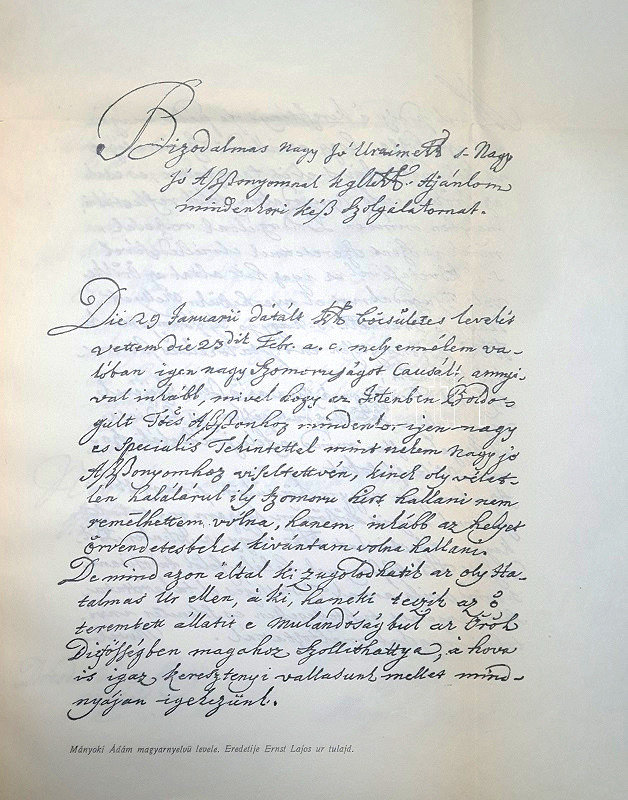 Bizodalmas Nagy Jó Uraimék s- Nagy
Jó Aſſonyomnak Ajánlom
mindenkori kéſz Szolgálatomat.
Die 29 Januarii dátált böcsületes levelét
vettem die 23 dik Febr. a. c. mely ennélem va-
lóban igen nagy Szomoruságot Causált, annyi-
val inkább, mivel hogy az Istenben Boldo-
gúlt Aſſonhoz mindenkor igen nagy
es Specialis Tekintettel mint nekem Nagy jó
Aſſonyomhoz viseltettvén, kinek oly vélet-
len haláláru​l ily szomoru hírt hallani nem
remélhettem vólna, hanem inkább az helyet
Örvendetesbeket kivántam volna hallani.
De mind azon által ki zugolodhatik az oly Ha-
talmas Ur ellen, á ki, ha neki teczik az ő
teremtett állatit e mulandóságbul az Örök
Dicsősségben magahoz Szollithattya, á hova
is igaz keresztenyi vallasunk mellet mind-
nyájan igekezünk.
Mányoki Ádám magyarnyelvü levele. Eredetije Ernst Lajos ur tulajd.